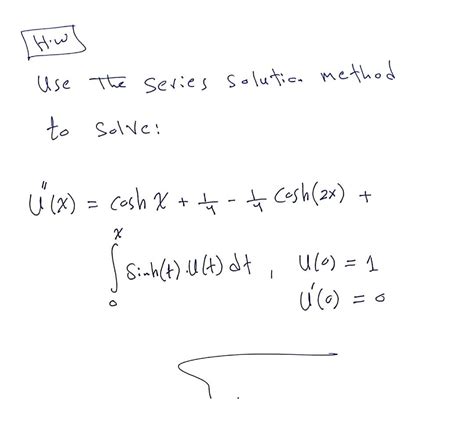 H.W
Use The series solution method
to solve:
U''(x) = cosh x + 1/4 - 1/4 Cosh(2x) +
∫₀ˣ Sinh(t).U(t) dt , U(0) = 1
U'(0) = 0